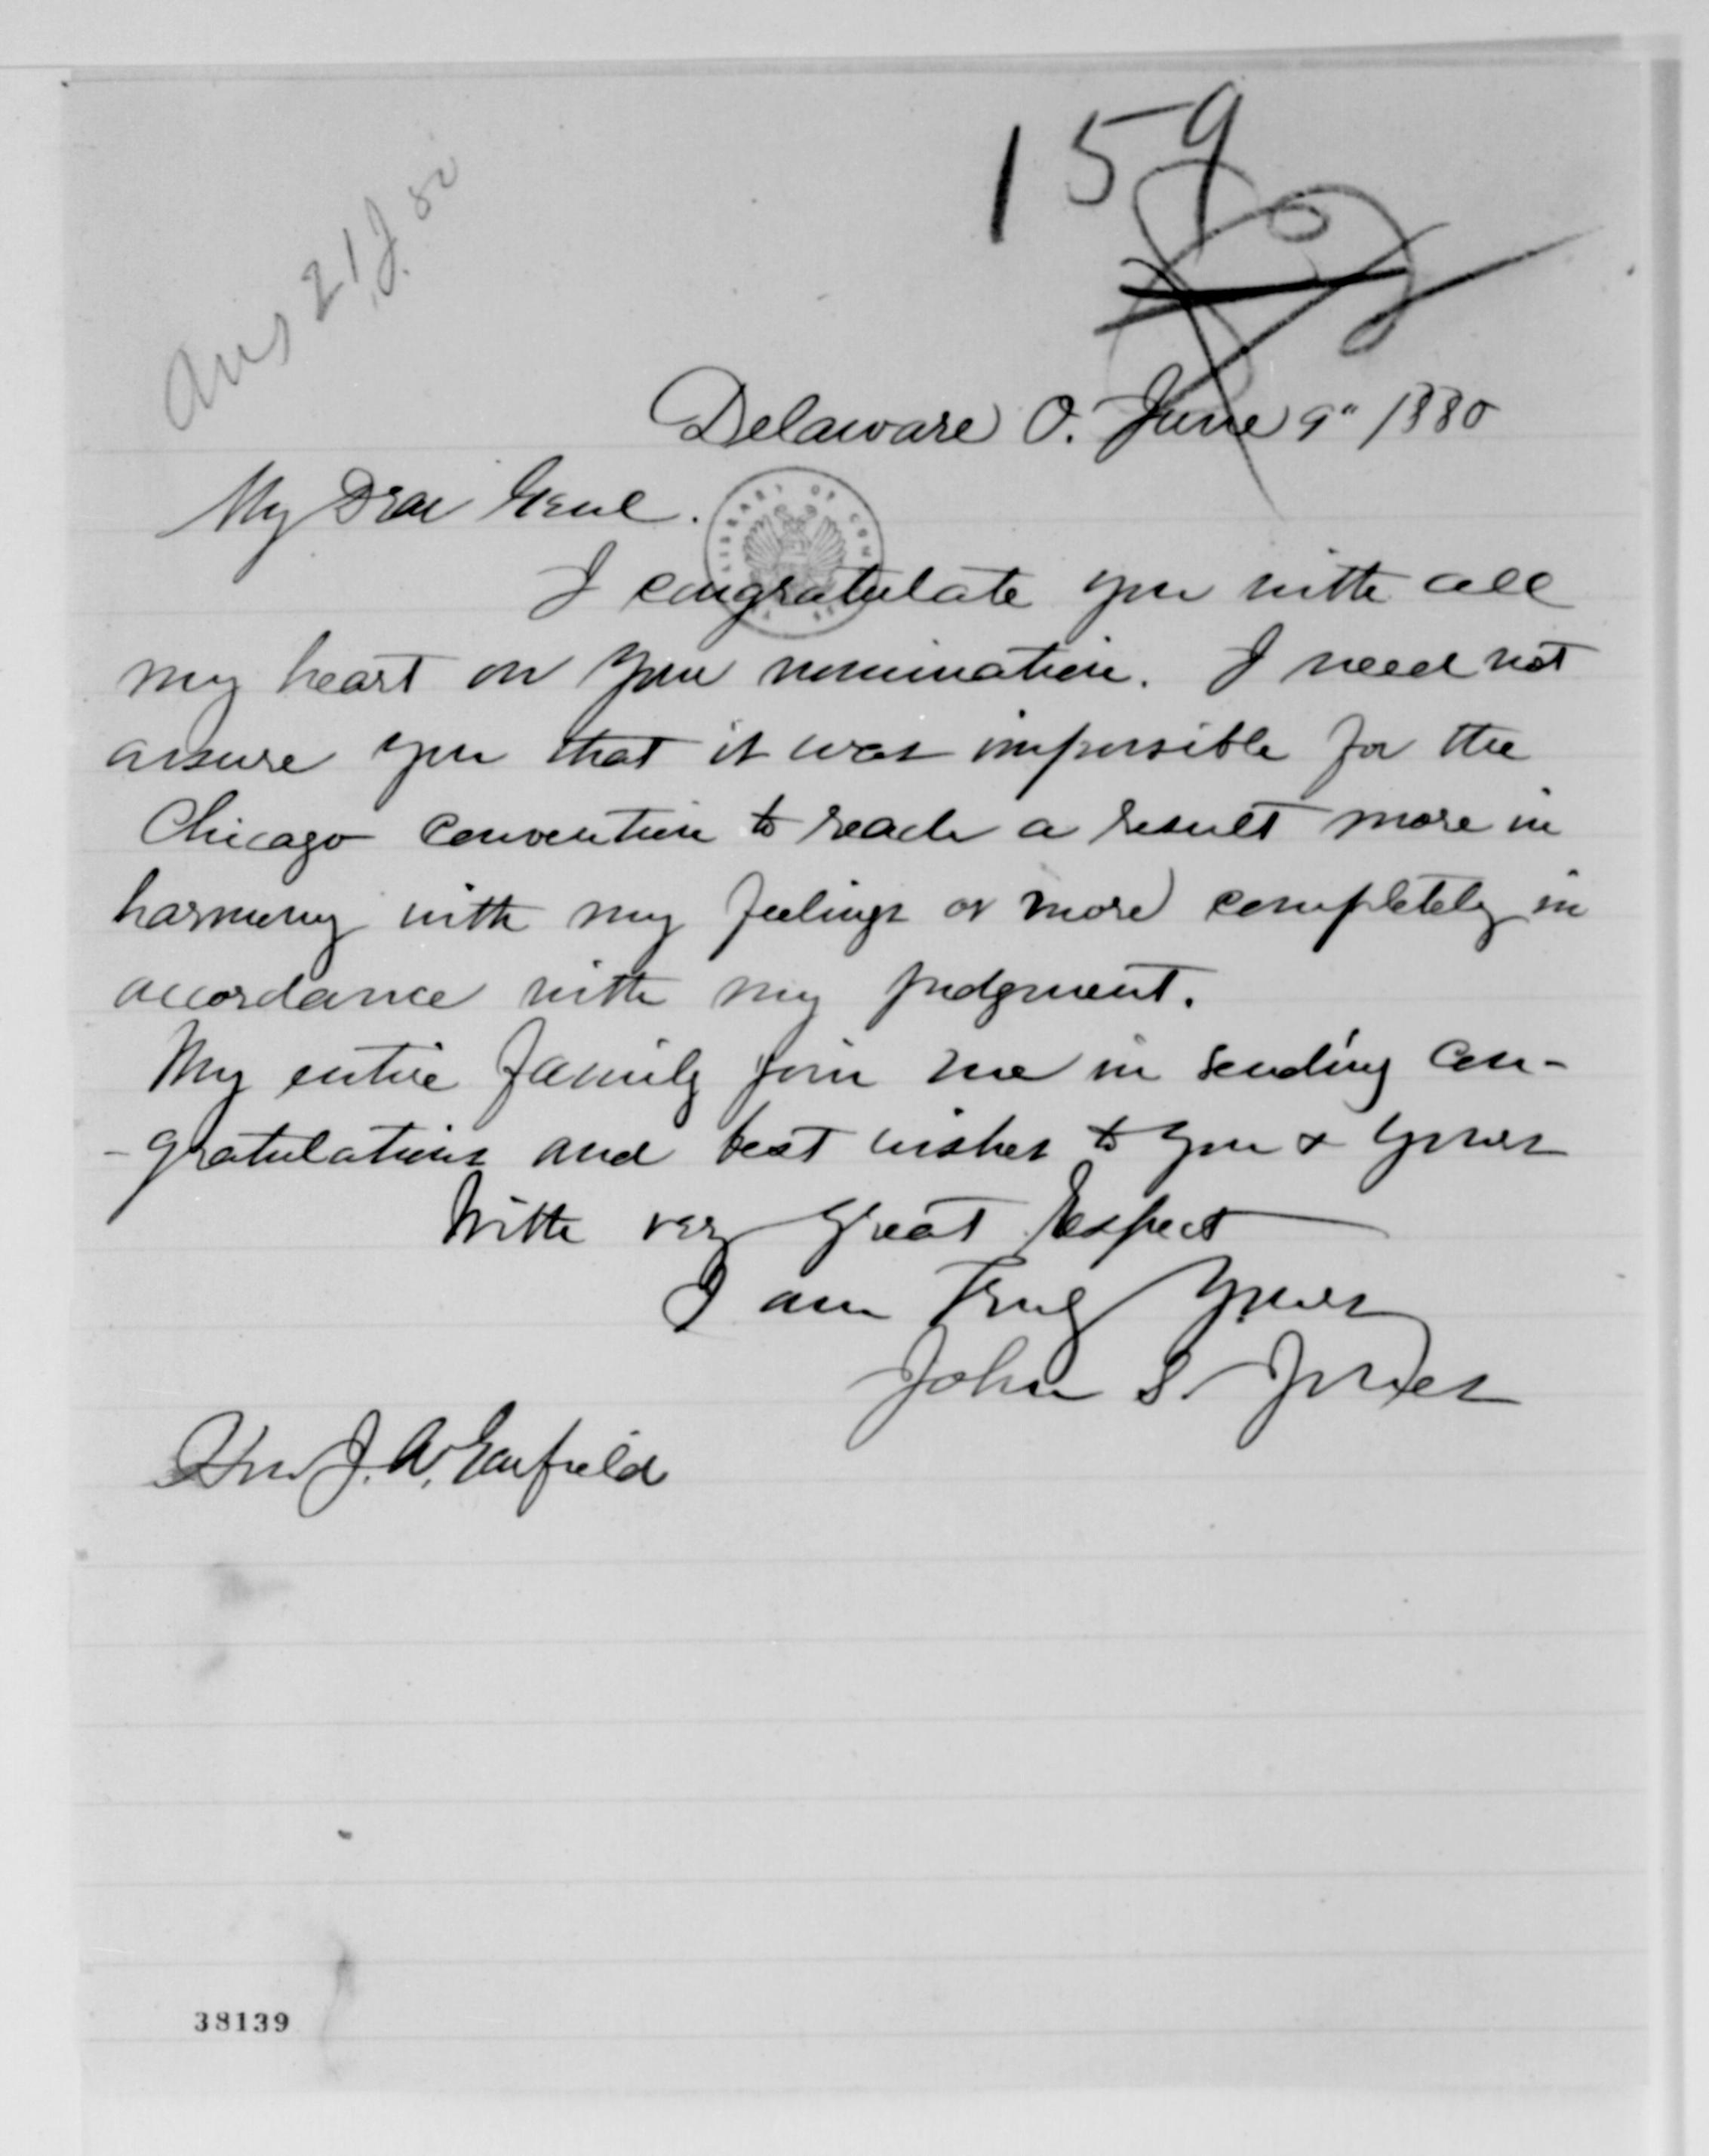 159
Ans 21 J. 80
Delaware O. June 9" 1880
My Dear Genl.
LIBRARY OF CON
I congratulate you with all
my heart on your nomination. I need not
assure you that it was impossible for the
Chicago convention to reach a result more in
harmony with my feelings or more completely in
accordance with my judgment.
My entire family join me in sending con-
-gratulations and best wishes to you & yours
With very great respect
I am Truly Yours
John S. Jones
Hon J. A. Garfield
38139